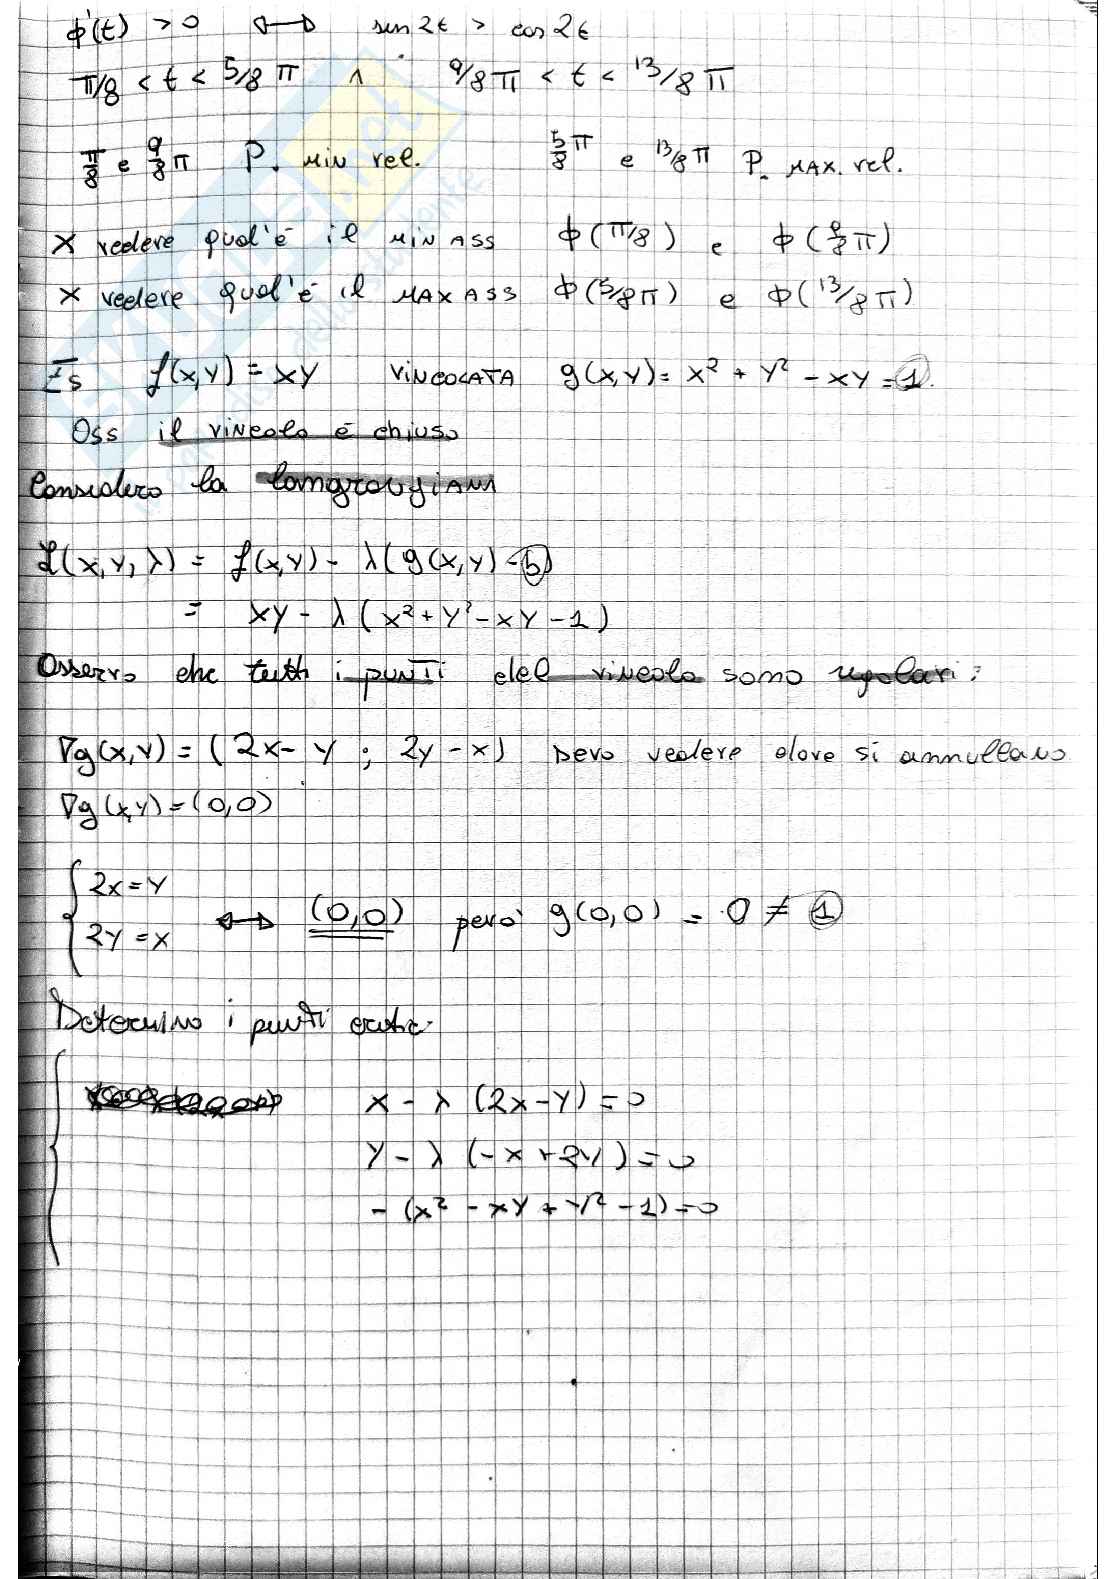 ϕ'(t) > 0 ⟷ sin 2t > cos 2t
π/8 < t < 5/8 π ∧ 9/8 π < t < 13/8 π
π/8 e 9/8 π P. MIN rel. 5/8 π e 13/8 π P. MAX. rel.
X vedere qual'è il MIN ASS ϕ(π/8) e ϕ(9/8 π)
X vedere qual'è il MAX ASS ϕ(5/8 π) e ϕ(13/8 π)
Es f(x,y) = xy VINCOLATA g(x,y) = x² + y² - xy = 1.
Oss il vincolo è chiuso
Considero la
L(x,y,λ) = f(x,y) - λ(g(x,y) - b)
= xy - λ(x² + y² - xy - 1)
Osservo che tutti i punti del vincolo sono regolari:
∇g(x,y) = (2x - y ; 2y - x) Devo vedere dove si annullano
∇g(x,y) = (0,0)
{ 2x = y
2y = x ⟷ (0,0) però g(0,0) = 0 ≠ 1
Determino i punti critic.
{ x - λ(2x - y) = 0
y - λ(-x + 2y) = 0
- (x² - xy + y² - 1) = 0